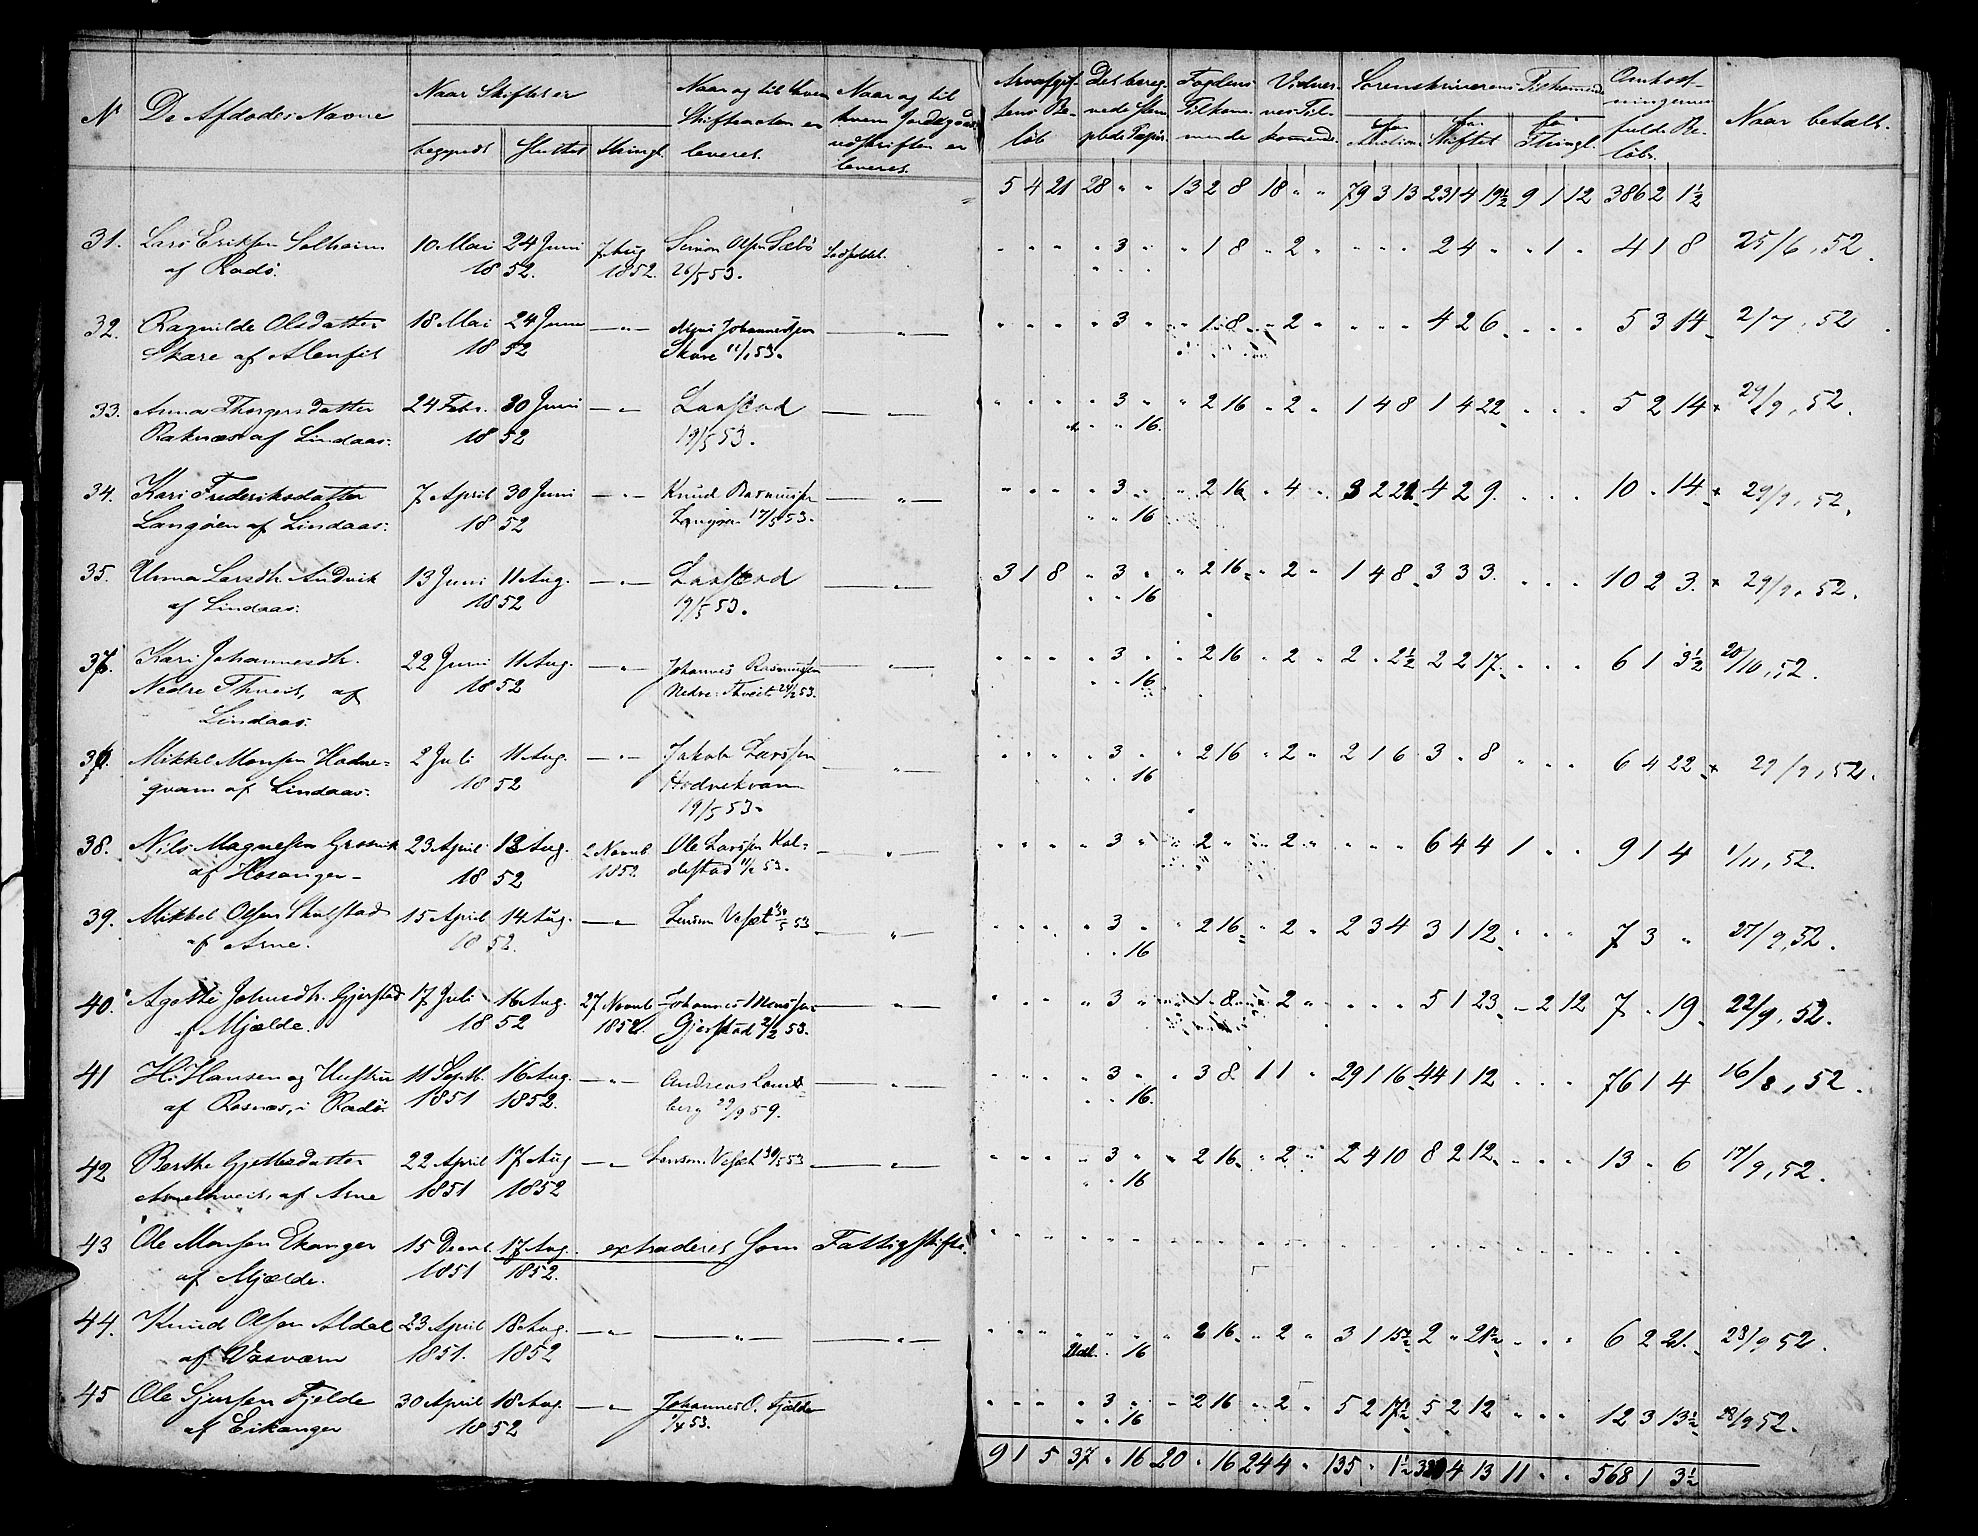 N De Afdødes Navne Naar Skiftet er Naar og til hvem Skifteacten er leveret. Naar og til hvem Jordegods udskriften er leveret.
begyndt Sluttet thingl.
Arveafgiftens Beløb Det beregnede Stemplede Papir Fogdens Tilkommende Vidnernes Tilkommende Sorenskriverens Tilkommende Omkostningernes fulde Beløb. Naar betalt.
for Auction for Skiftet for Thingl.
5 4 21 28 " " 13 2 8 18 " " 79 3 13 231 4 19½ 9 1 12 386 2 1½
31. Lars Eriksen Solheim 10 Mai 24 Juni 7 Aug Simon Olsen Sæbø " " " " 3 " " 1 8 " 2 " " " " 2 4 " " 1 " 4 1 8 25/6, 52.
af Radø. 18 52. 1852. 26/5 53.
32. Ragnilde Olsdatter 18 Mai 24 Juni — " — Johannessen — " — " " " " 3 " " 1 8 " 2 " " " " 4 2 6 " " " 5 3 14 2/7, 52
Skare af Alenfit 18 52 Skare 11/1 53.
33. Anna Thorgersdatter 24 Febr. 30 Juni — " — — " — " " " " 3 " " 2 16 " 2 " 1 4 8 1 4 22 " " " 5 2 14 29/9, 52.
Raknæs af Lindaas. 18 52 19/5 53. 16
34. Kari Frederiksdatter 7 April 30 Juni — " — Knud Rasmussen — " — " " " " 3 " " 2 16 " 4 " 3 2 22 4 2 9 " " " 10 " 14 29/9, 52.
Langøen af Lindaas. 18 52 Langøen 17/5 53. 16
35. Unna Larsdtr. Andvik 13 Juni 11 Aug. — " — — " — 3 1 8 " 3 " " 2 16 " 2 " 1 4 8 3 3 3 " " " 10 2 3 29/9, 52.
af Lindaas. 1852 19/5 53. 16
37. Kari Johannesdtr. 22 Juni 11 Aug. — " — Johannes Rasmussen — " — " " " " 3 " " 2 16 " 2 " 2 " 2½ 2 2 17 " " " 6 1 3½ 20/10, 52.
Nedre Thveit, af 1852 Nedre-Thveit 53. 16
Lindaas.
36. Mikkel Monsen Hodne- 2 Juli 11 Aug. — " — Jakob Larssen — " — " " " " 3 " " 2 16 " 2 " 2 1 6 3 " 8 " " " 6 4 22 29/9, 52.
qvam af Lindaas. 18 52 Hodnekvam 16
19/5 53.
38. Nils Magnesen 23 April 13 Aug. 2 Novmb. Ole Larssen Kal- — " — " " " " 3 " " 2 " " 2 " " " " 6 4 4 1 " " 9 1 4 1/11, 52.
af Hosanger 18 52 1852 destad 53.
39. Mikkel Olsen Skulstad 15 April 14 Aug. — " — Lensm. Veset 30/5 53 — " — " " " " 3 " " 2 16 " 2 " 2 3 4 3 1 12 " " " 7 3 " 27/9, 52.
af Arne. 18 52. 16
40. Agathe Johnsdtr. Gjerstad 17 Juli 16 Aug. 27 Novmb. Johannes Monssen — " — " " " " 3 " " 1 8 " 2 " " " " 5 1 23 " 2 12 7 " 19 22/9, 52.
af Mjelde. 18 52 1852. Gjerstad 53.
41 H. Hansen og Hustru 11 Septb. 16 Aug. — " — Andreas Lam- — " — " " " " 3 " " 3 8 1 1 " 29 1 16 44 1 12 " " " 76 1 4 16/8, 52.
af Rosnæs, i Radø. 1851 1852. berg 29/9 59. 16.
42 Berthe Gjetlesdatter 22 April 17 Aug — " — Lensm. Veset 30/5 53 — " — " " " " 3 " " 2 16 " 2 " 2 4 10 8 2 12 " " " 13 " 6 17/9, 52.
Arnethveit, af Arne 1851 1852 16
43 Ole Monsen Ekanger 15 Decmb. 17 Aug. extraderet som Fattigskifte.
af Mjelde. 1851 1852.
44. Knud Olsen Aldal 23 April 18 Aug. — " — — " — — " — " " " " " " " 2 16 " 2 " 3 1 15½ 2 " 21½ " " " 6 2 21. 28/9 52.
af Vasværn 1851. 1852 16
45 Ole Sjursen Fjelde 30 April 18 Aug. — " — Johannes O. Fjelde " " " " 3 " " 2 16 " 2 " 5 2 17½ 5 2 12 " " " 12 3 13½ 28/9 52.
af Eikanger 1852 1/4 53. 16
9 1 5 37 " 16 20 " 16 24 4 " 135 " 1½ 4 13 11 " " 568 1 3½